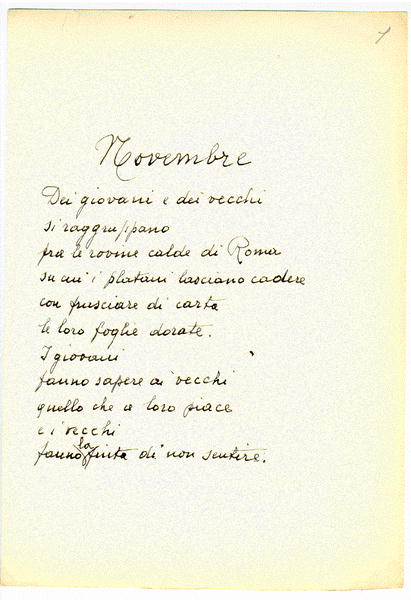 1
Novembre
Dei giovani e dei vecchi
si raggruppano
fra le rovine calde di Roma
su cui i platani lasciano cadere
con frusciare di carta
le loro foglie dorate.
I giovani
fanno sapere ai vecchi
quello che a loro piace
e i vecchi
fanno la finta di non sentire.